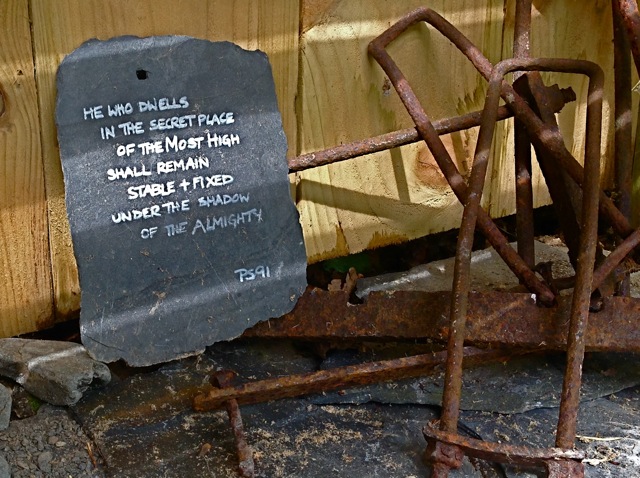 HE WHO DWELLS
IN THE SECRET PLACE
OF THE MOST HIGH
SHALL REMAIN
STABLE + FIXED
UNDER THE SHADOW
OF THE ALMIGHTY
PS91